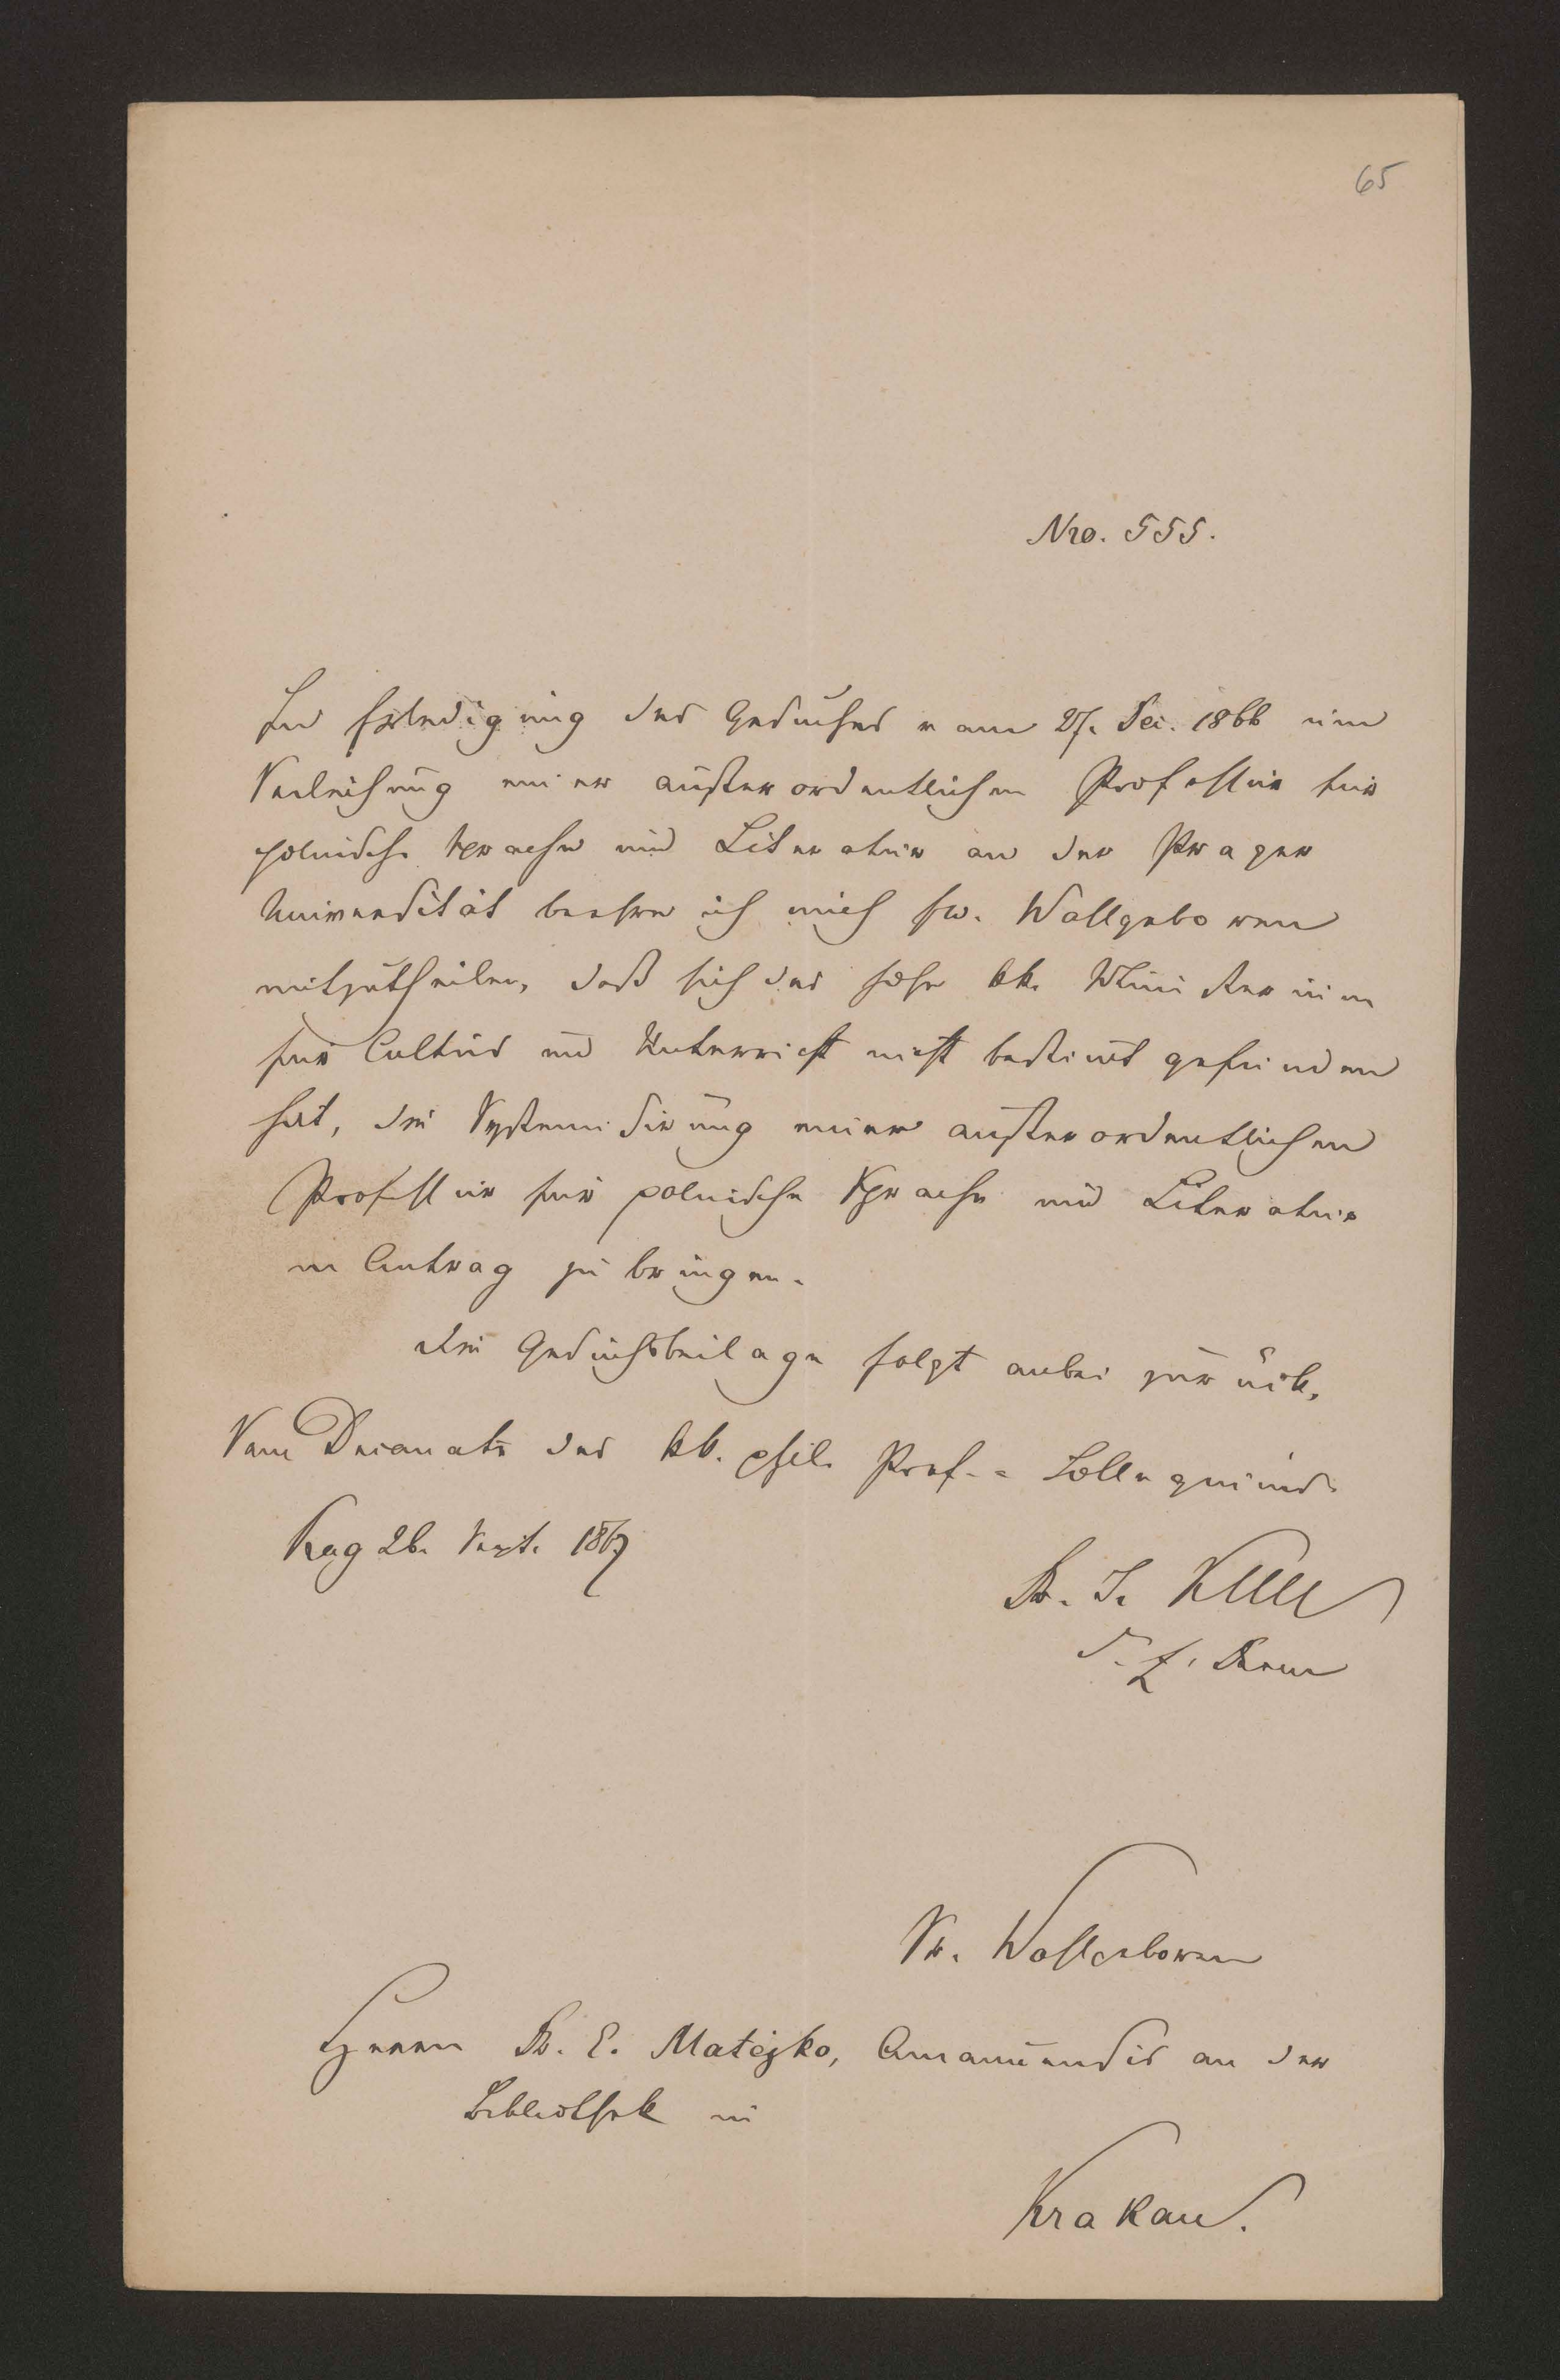 65
Nro. 555.
In Erledigung des Gesuches vom 27. Dec. 1866 um
Verleihung einer außerordentlichen Professur für
polnische Sprache und Literatur an der Prager
Universität beehre ich mich Ew. Wohlgeboren
mitzutheilen, daß sich das hohe kk. Ministerium
für Cultus und Unterricht nicht bestimt gefunden
hat, die Systemisirung einer außerordentlichen
Professur für polnische Sprache und Literatur
in Antrag zu bringen.
Die Gesuchsbeilage folgt anbei zurück.
Vom Decanate des kk. phil. Prof.- Collegiums.
Prag 26. Sept. 1867
Dr. d. Z. Decan
Sr. Wohlgeboren
Herrn Dr. E. Matejko, Amanuensis an der
Bibliothek in
Krakau.